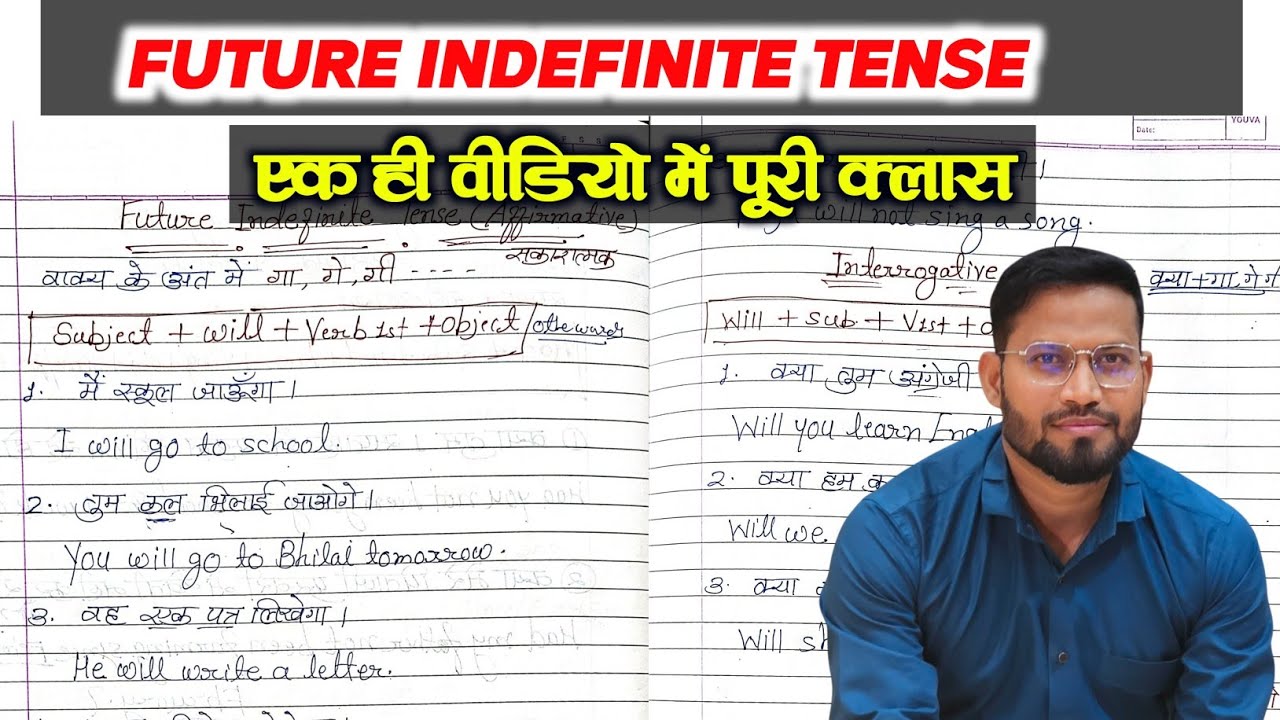 FUTURE INDEFINITE TENSE
एक ही वीडियो में पूरी क्लास
Future Indefinite Tense (Affirmative)
सकारात्मक
वाक्य के अंत में गा, गे, गी ----
Subject + will + Verb 1st + Object / otherwords
1. मैं स्कूल जाऊँगा।
I will go to school.
2. तुम कल भिलाई जाओगे।
You will go to Bhilai tomorrow.
3. वह एक पत्र लिखेगा।
He will write a letter.
YOUVA
Date:
will not sing a song.
Interrogative
क्या + गा, गे, ग
Will + sub. + V1st + o
1. क्या तुम अंग्रेजी
Will you learn Engl
2. क्या हम क
Will we
3. क्या
Will sh